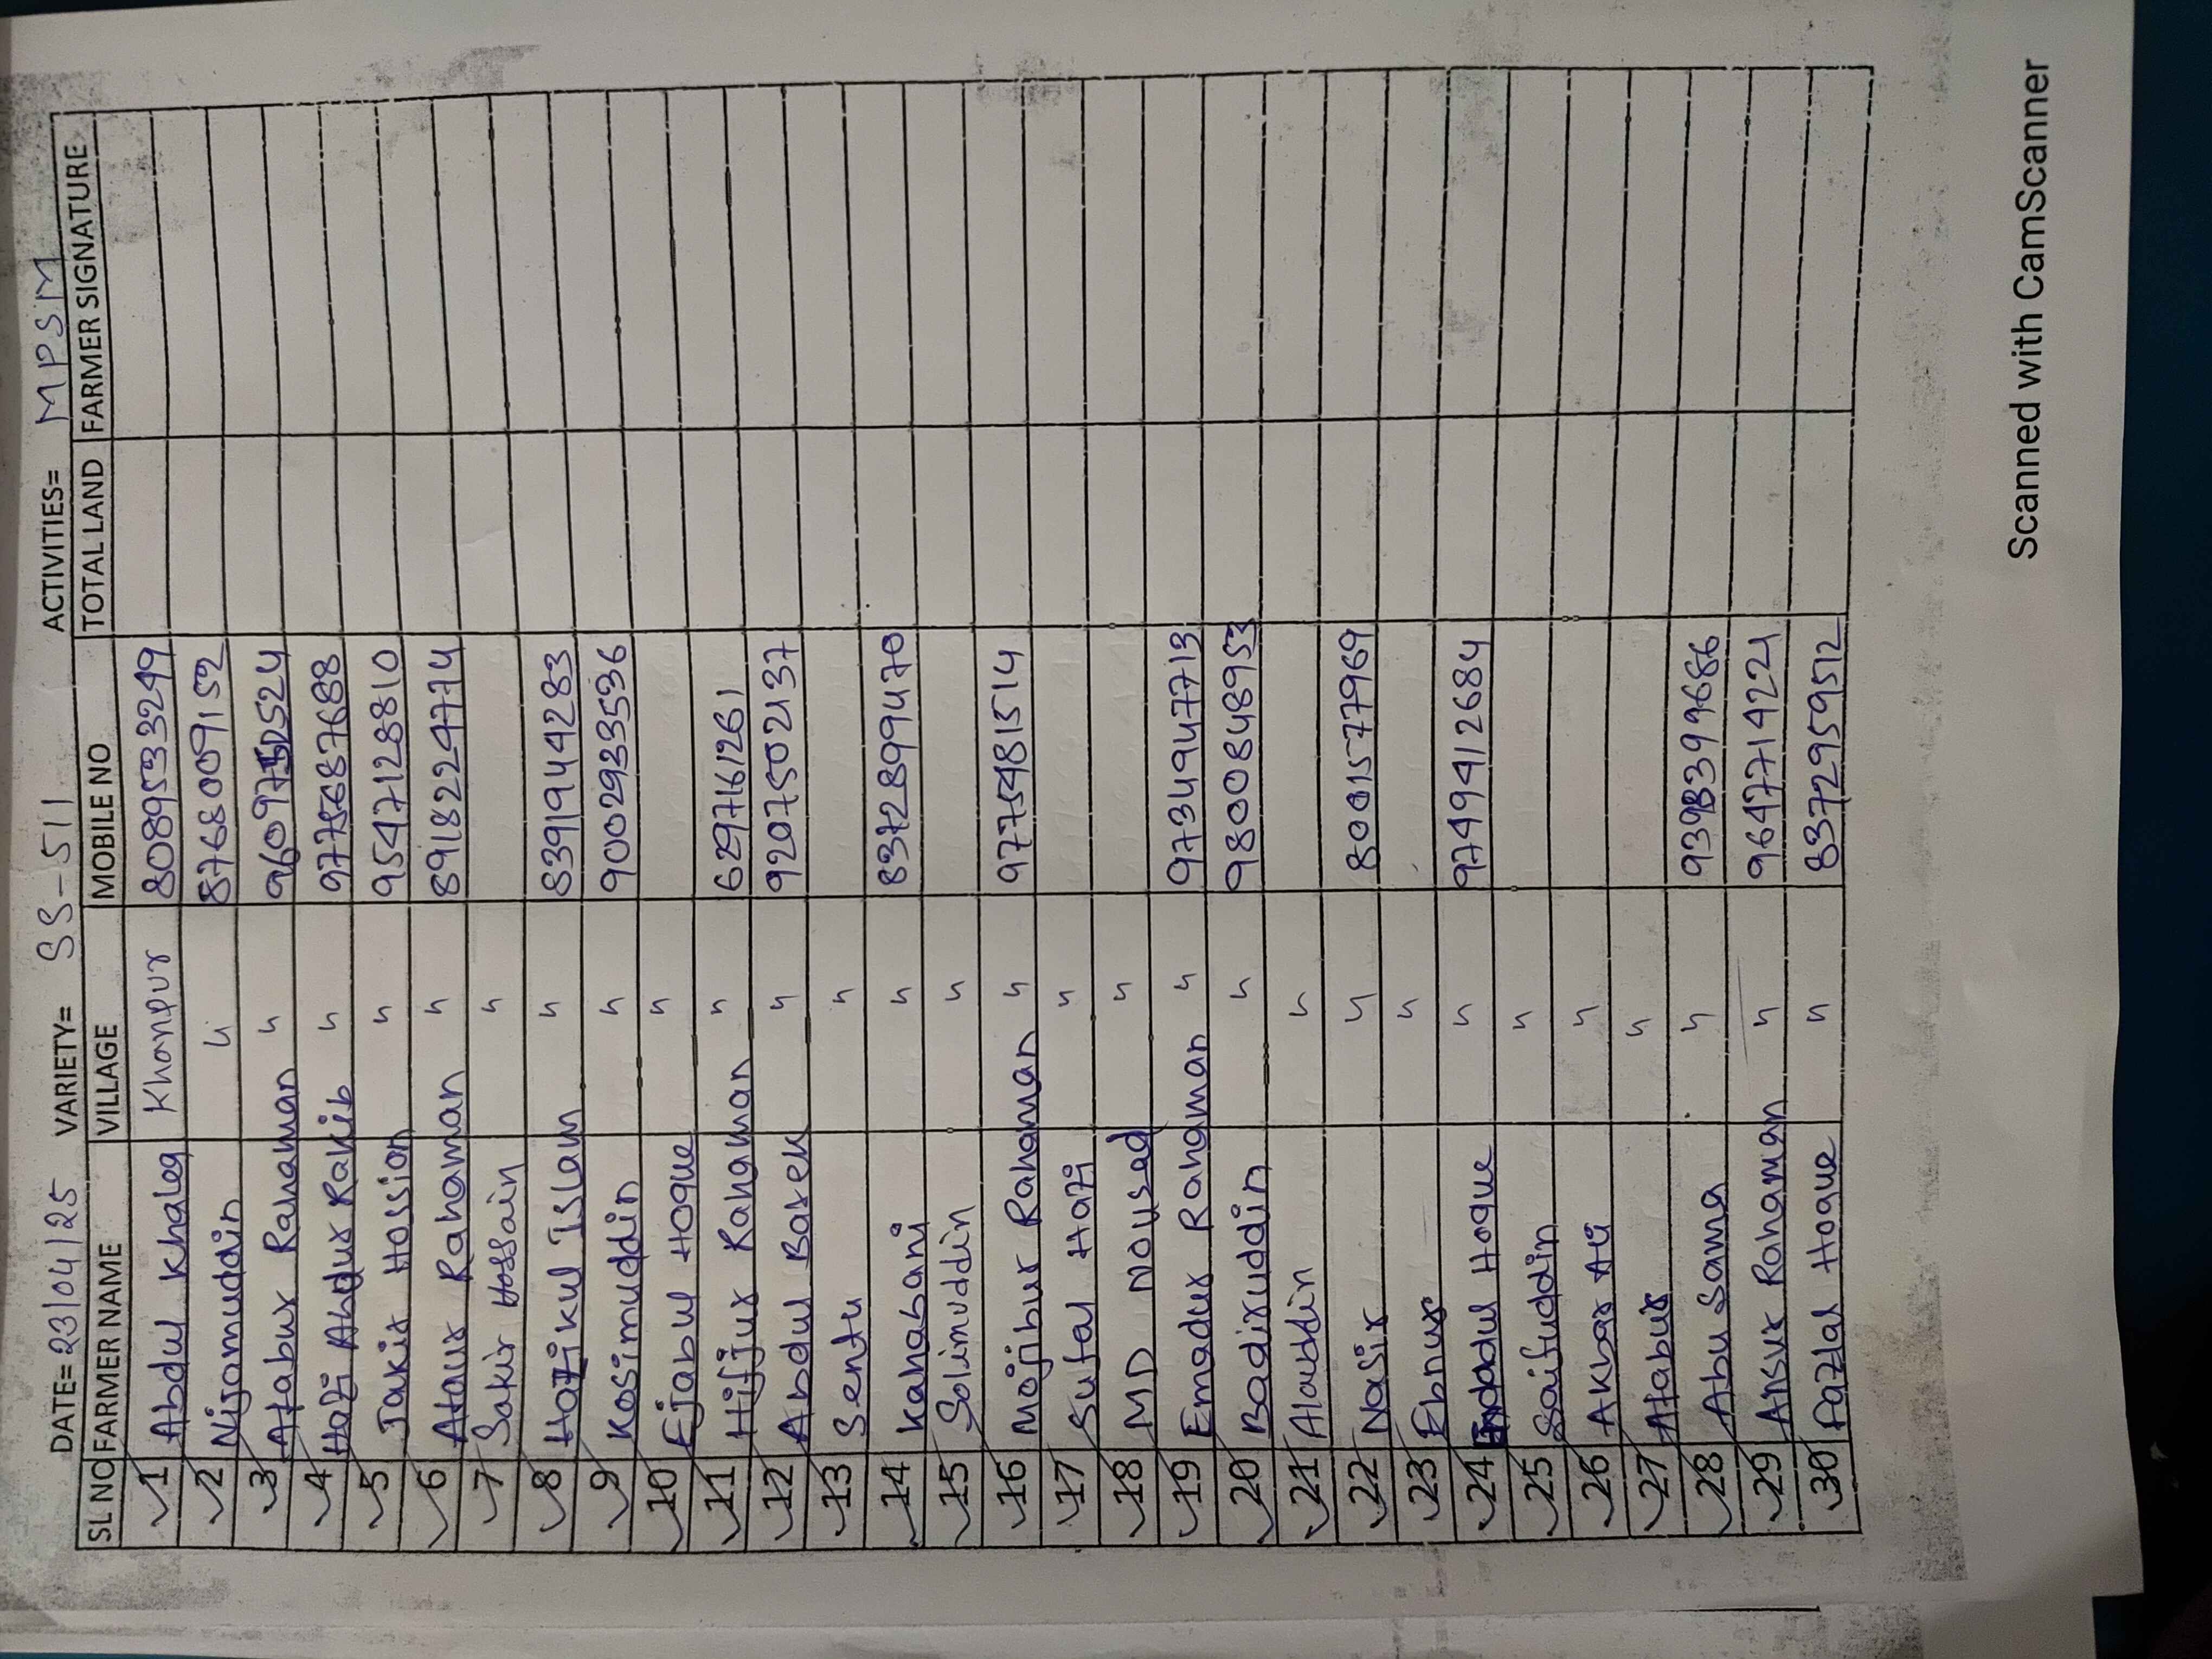 DATE= 23/04/25 VARIETY= SS-511 ACTIVITIES= MPSM
SL NO FARMER NAME VILLAGE MOBILE NO TOTAL LAND FARMER SIGNATURE
1 Abdul Khaleq Khanpur 8089533249
2 Nijamuddin " 8768009152
3 Atabur Rahaman "
4 Hazi Abdur Rakib " 9775687688
5 Jakir Hossion " 9547128810
6 Ataur Rahaman " 8918224774
7 Sakir Hossain "
8 Hazikul Islam " 8391944283
9 Kosimuddin " 9002933536
10 Ejabul Hoque "
11 Hifjur Rahaman "
12 Abdul Barek " 9207502137
13 Sentu "
14 Kahabani " 8372899470
15 Solimuddin "
16 Mojibur Rahaman " 9775481514
17 Sufal Hazi "
18 MD Nousad "
19 Emadur Rahaman " 9734947713
20 Badiruddin " 9800848953
21 Alauddin "
22 Nasir " 8001577969
23 Ebnur "
24 Endadul Hoque " 9749412684
25 Saifuddin "
26 Akbar Ali "
27 Atabur "
28 Abu Sama "
29 Ansur Rahaman " 9647714221
30 Fazlal Hoque " 8372959512
Scanned with CamScanner